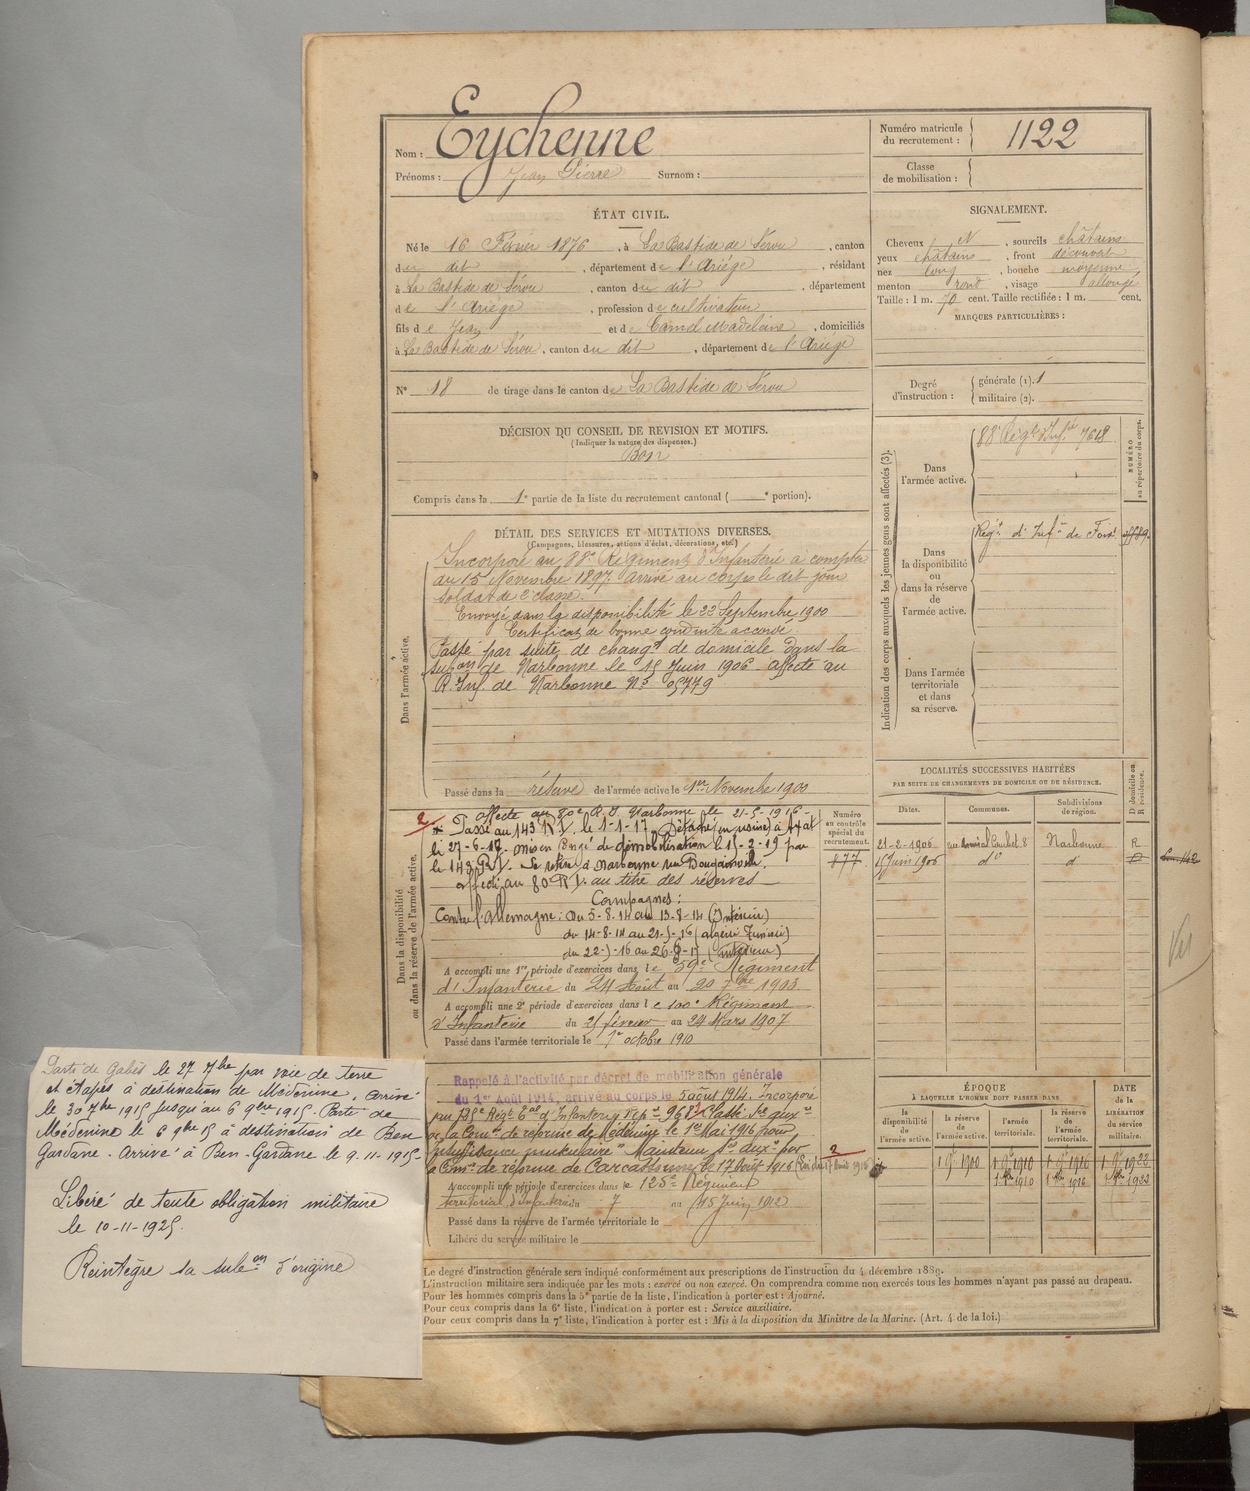 Nom : Eychenne
Prénoms : Jean Pierre Surnom :
Numéro matricule du recrutement : 1122
Classe de mobilisation :
ÉTAT CIVIL.
Né le 16 Février 1876, à La Bastide de Sérou, canton
du dit, département de l'Ariége, résidant
à La Bastide de Sérou, canton du dit, département
de l'Ariége, profession de cultivateur
fils de Jean et de Camel Madeleine, domiciliés
à La Bastide de Sérou, canton du dit, département de l'Ariége
N° 18 de tirage dans le canton de La Bastide de Sérou
SIGNALEMENT.
Cheveux N, sourcils châtains
yeux châtains, front découvert
nez long, bouche moyenne
menton rond, visage allongé
Taille : 1 m. 70 cent. Taille rectifiée : 1 m. cent.
MARQUES PARTICULIÈRES :
Degré d'instruction : générale (1). 1
militaire (2).
DÉCISION DU CONSEIL DE REVISION ET MOTIFS.
(Indiquer la nature des dispenses.)
Bon
Compris dans la 1e partie de la liste du recrutement cantonal ( e portion).
Indication des corps auxquels les jeunes gens sont affectés (3).
NUMÉRO au répertoire du corps.
Dans l'armée active.
88e Régt d'Infie 7618
Dans la disponibilité ou dans la réserve de l'armée active.
Régt d'Infie de Foix
Dans l'armée territoriale et dans sa réserve.
DÉTAIL DES SERVICES ET MUTATIONS DIVERSES.
(Campagnes, blessures, actions d'éclat, décorations, etc.)
Dans l'armée active.
Incorporé au 88e Régiment d'Infanterie à compter
du 15 Novembre 1897. Arrivé au corps le dit jour
soldat de 2e classe.
Envoyé dans la disponibilité le 22 Septembre 1900
Certificat de bonne conduite accordé
Passé par suite de changt de domicile dans la
subon de Narbonne le 15 Juin 1906 affecté au
R. Inf. de Narbonne No 05779
Passé dans la réserve de l'armée active le 1er Novembre 1900
LOCALITÉS SUCCESSIVES HABITÉES
PAR SUITE DE CHANGEMENTS DE DOMICILE OU DE RÉSIDENCE.
Dates. Communes. Subdivisions de région. D domicile ou R résidence.
21-2-1906 rue Amiral Courbet 8 Narbonne R
15 Juin 1906 do d D
Dans la disponibilité ou dans la réserve de l'armée active.
Numéro au contrôle spécial du recrutement.
177
affecté au 80e R.I. Narbonne le 21-5-1916
Passé au 143 R.I. le 1-1-17. Détaché (en usine) à
le 27-6-17. mis en Congé de démobilisation le 15-2-19 par
le 143 R.I. Se retire à Narbonne rue Bougainville.
affecté au 80e R.I. au titre des réserves
Campagnes :
Contre l'Allemagne : Du 5-8-14 au 13-8-14 (Intérieur)
du 14-8-14 au 21-5-16 (algérie Tunisie)
du 22-5-16 au 26-6-17 (intérieur)
A accompli une 1re période d'exercices dans le 59e Régiment
d'Infanterie du 24 Août au 20 7bre 1903
A accompli une 2e période d'exercices dans le 100e Régiment
d'Infanterie du 25 février au 24 Mars 1907
Passé dans l'armée territoriale le 1er octobre 1910
Rappelé à l'activité par décret de mobilisation générale
du 1er Août 1914, arrivé au corps le 5 août 1914. Incorporé
au 125e Régt Tal d'Infanterie
de la Comon de réforme de Médenine le 1er Mai 1916 pour
"insuffisance musculaire" Maintenu Sce auxre par
la Comon de réforme de Carcassonne le 17 Août 1916
A accompli une période d'exercices dans le 125e Régiment
territorial d'Infanterie du 7 au 15 Juin 1912
Passé dans la réserve de l'armée territoriale le
Libéré du service militaire le
ÉPOQUE
À LAQUELLE L'HOMME DOIT PASSER DANS
la disponibilité de l'armée active. la réserve de l'armée active. l'armée territoriale. la réserve de l'armée territoriale.
DATE de la LIBÉRATION du service militaire.
1 9bre 1900 1 9bre 1910 1 9bre 1916 1 9bre 1922
1 8bre 1910 1 8bre 1916 1 8bre 1922
Le degré d'instruction générale sera indiqué conformément aux prescriptions de l'instruction du 4 décembre 1889.
L'instruction militaire sera indiquée par les mots : exercé ou non exercé. On comprendra comme non exercés tous les hommes n'ayant pas passé au drapeau.
Pour les hommes compris dans la 5e partie de la liste, l'indication à porter est : Ajourné.
Pour ceux compris dans la 6e liste, l'indication à porter est : Service auxiliaire.
Pour ceux compris dans la 7e liste, l'indication à porter est : Mis à la disposition du Ministre de la Marine. (Art. 4 de la loi.)
Parti de Gabès le 27 7bre par voie de terre
et étapes à destination de Médenine, arrivé
le 30 7bre 1915 jusqu'au 6 9bre 1915. Parti de
Médenine le 6 9bre 15 à destination de Ben
Gardane. Arrivé à Ben-Gardane le 9-11-1915
Libéré de toute obligation militaire
le 10-11-1925.
Réintègre sa subon d'origine